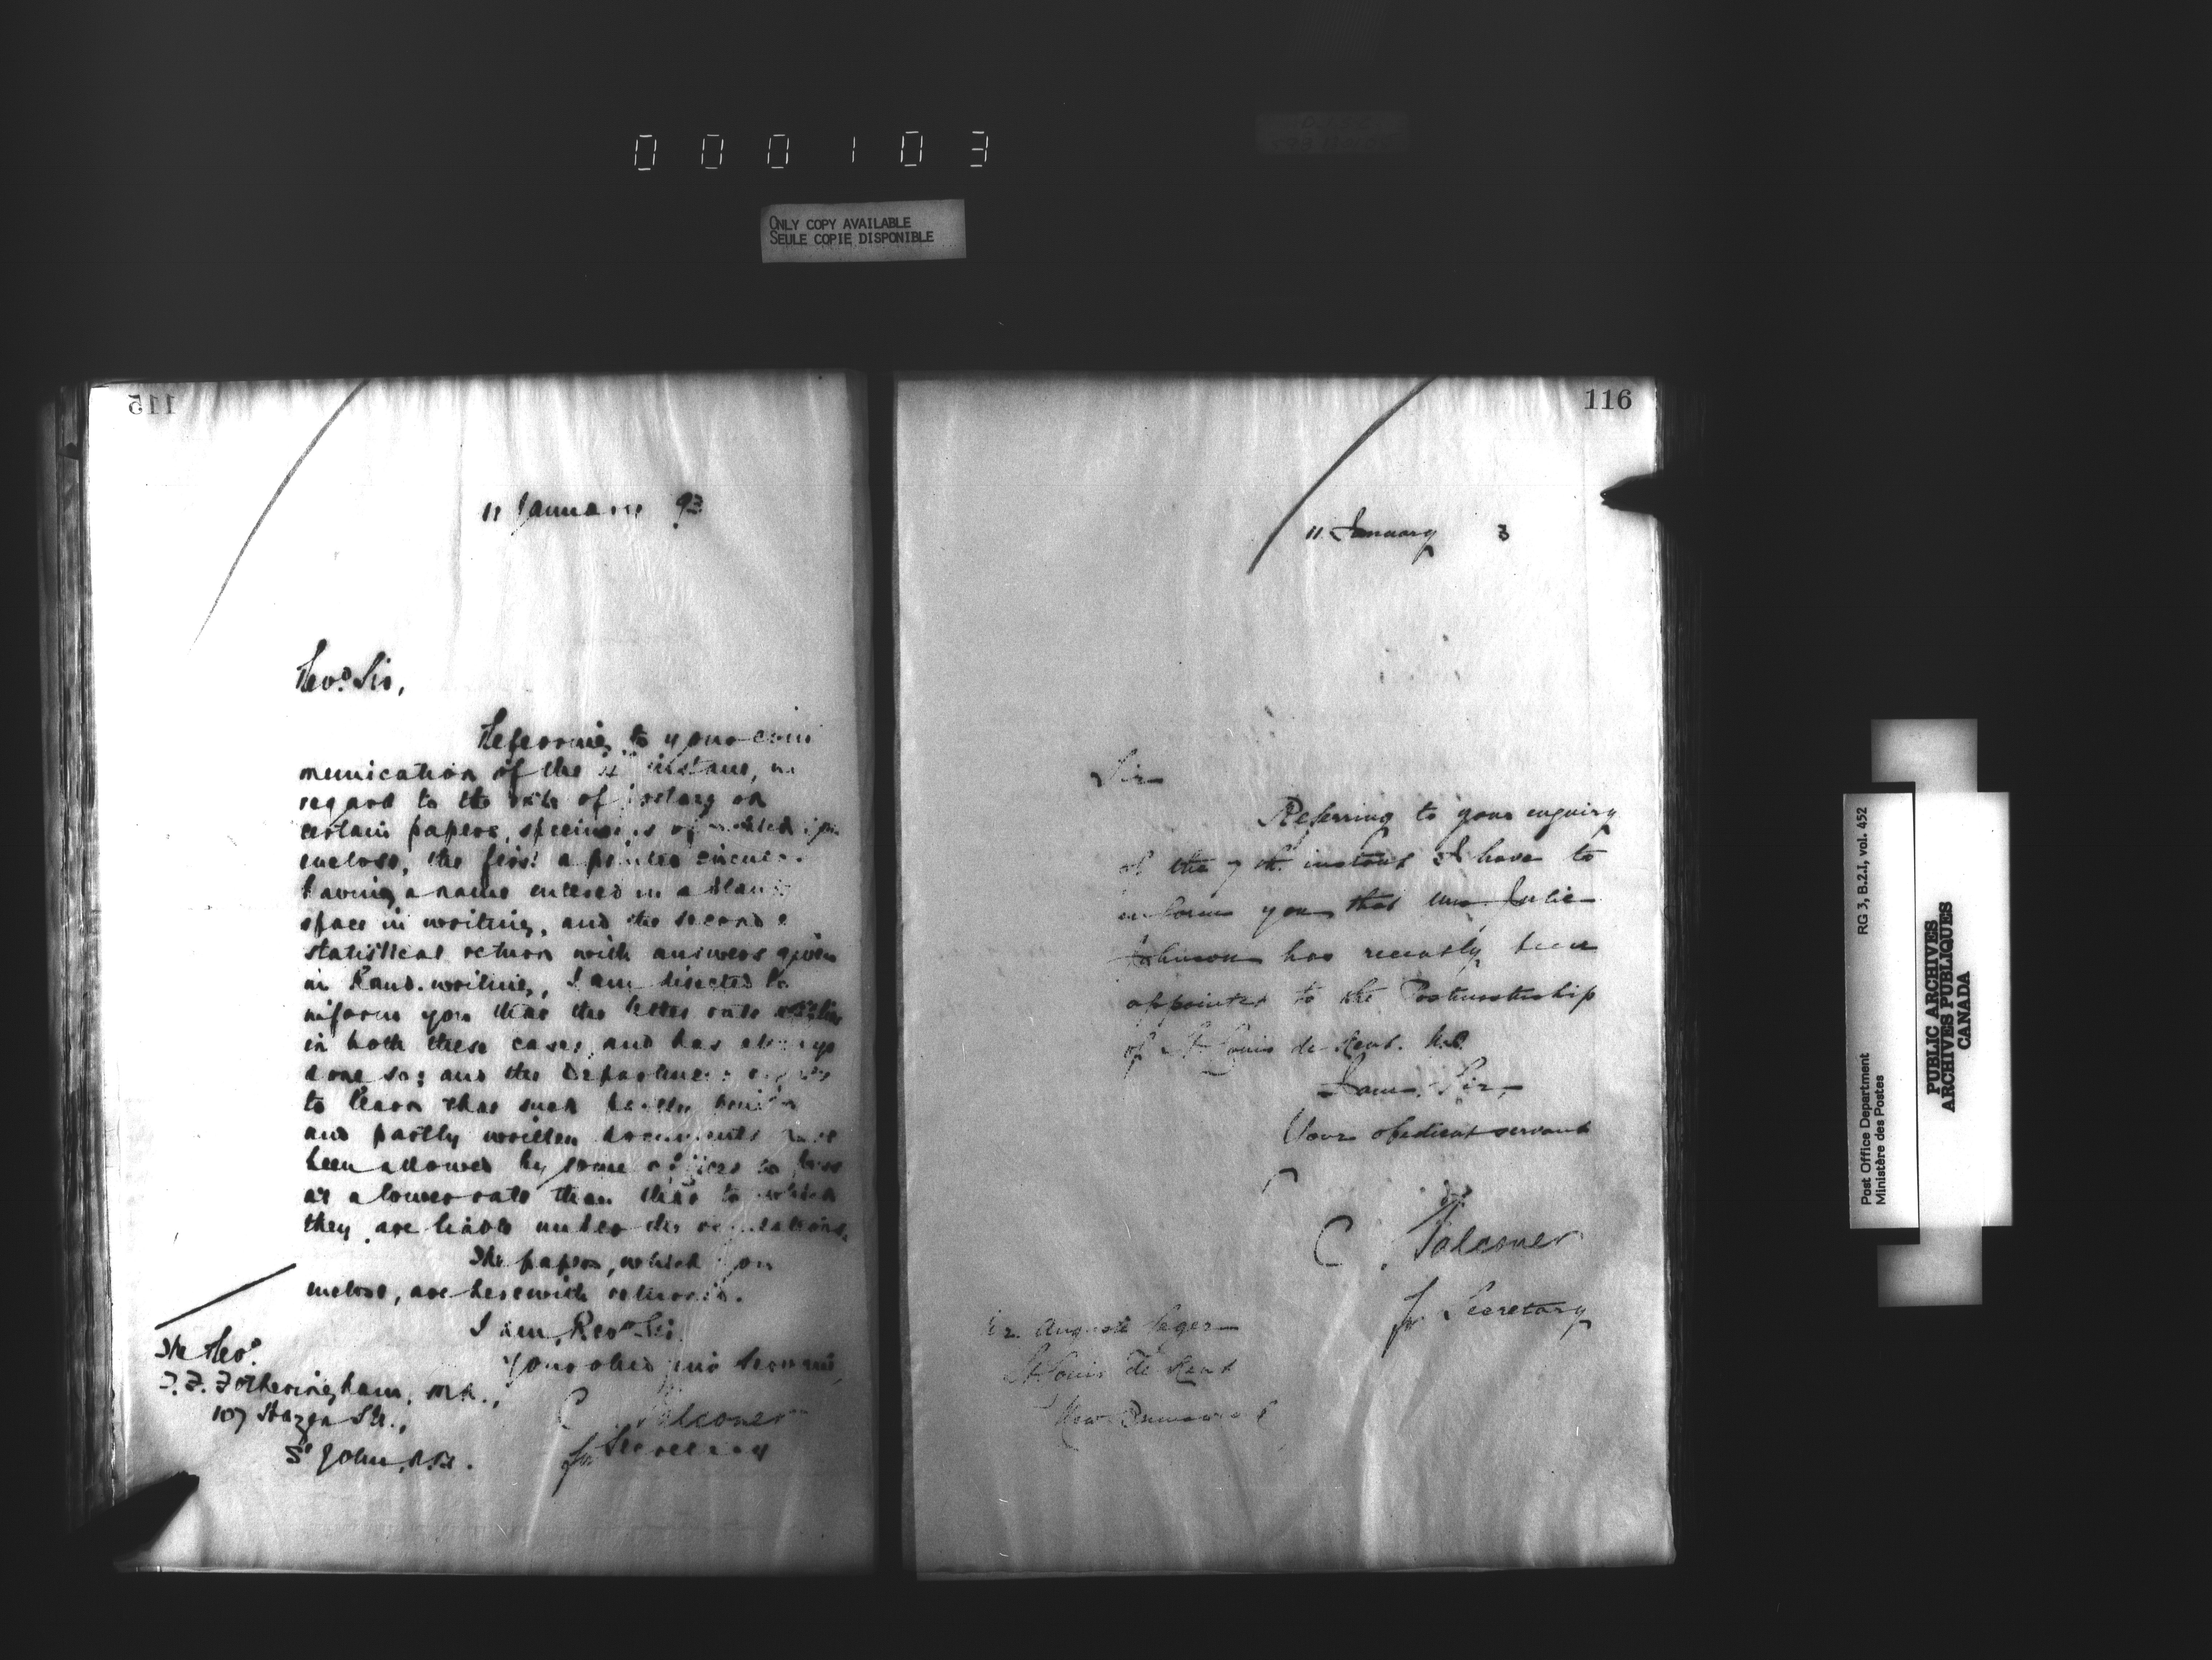 000103
ONLY COPY AVAILABLE
SEULE COPIE DISPONIBLE
115
11 January 93
Revd. Sir,
Referring to your com
munication of the instant, in
regard to the rate of postage on
certain papers, specimens of which you
enclose, the first a printed circular
having a name entered in a blank
space in writing, and the second a
statistical return with answers given
in hand-writing, I am directed to
inform you that the letter rate applies
in both these cases, and has always
done so; and the Department regrets
to learn that such partly printed
and partly written documents have
been allowed by some officers to pass
at a lower rate than that to which
they are liable under the regulations.
The papers, which you
enclose, are herewith returned.
I am, Revd. Sir,
Your obedient servant,
C Falconer
for Secretary
The Revd.
T. F. Fotheringham, M.A.,
107 Hazen St.,
St John, N.B.
116
11 January 3
Sir
Referring to your enquiry
of the 7th. instant I have to
inform you that Julie
Johnson has recently been
appointed to the Postmastership
of St. Louis de Kent. N.B.
I am, Sir,
Your obedient servant
C. Falconer
for Secretary
Mr. Auguste Leger
St. Louis de Kent
New Brunswick
RG 3, B.2.I, vol. 452
Post Office Department
Ministère des Postes
PUBLIC ARCHIVES
ARCHIVES PUBLIQUES
CANADA